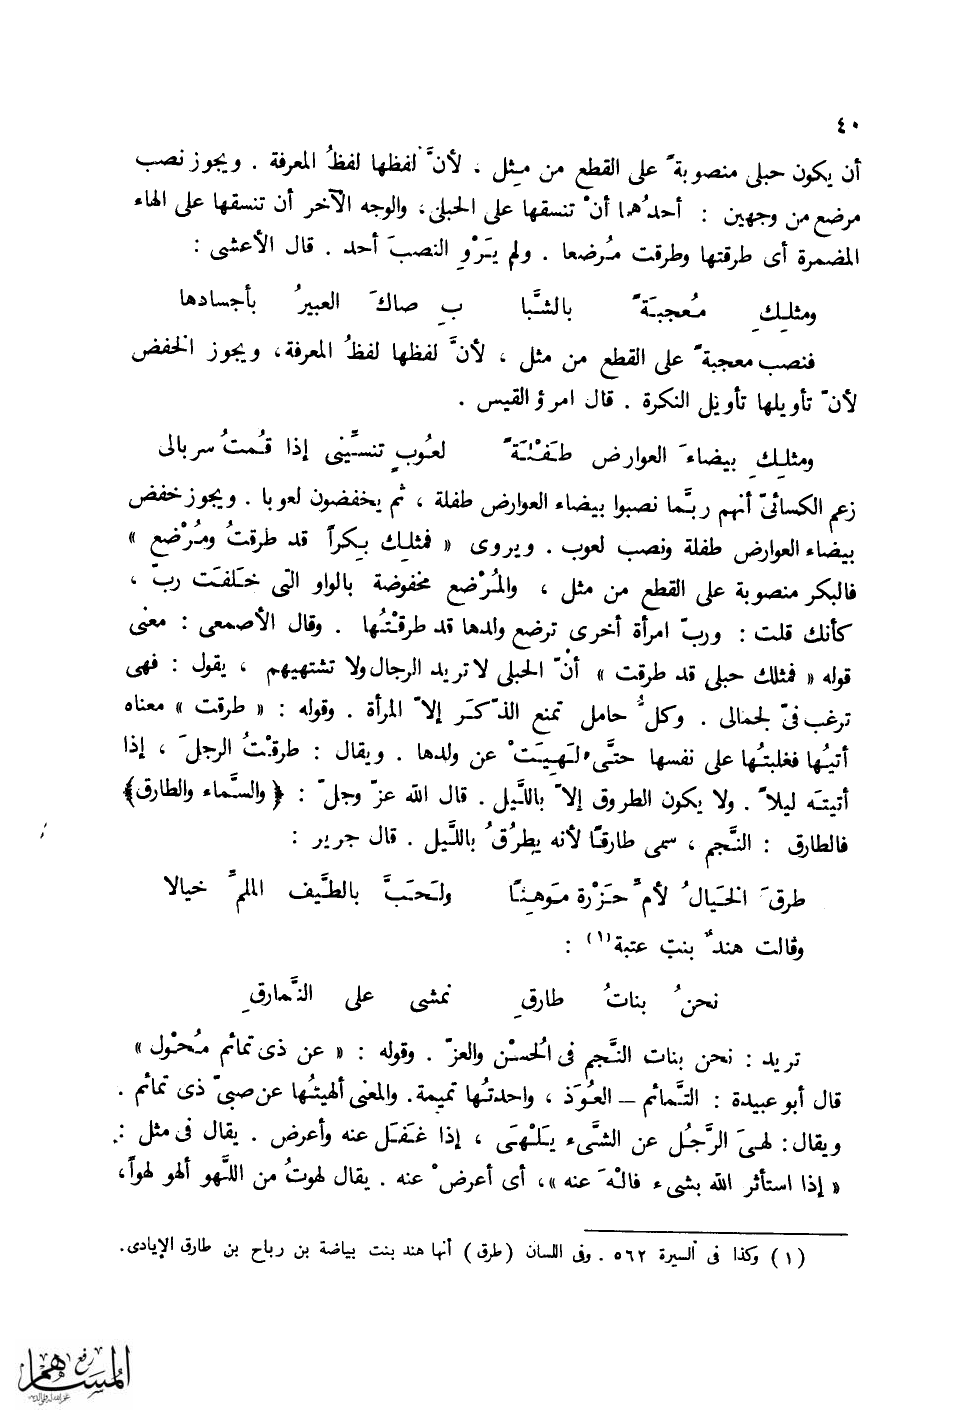 ٤٠
أن يكون حبلى منصوبةً على القطع من مِثل ، لأنَّ لفظها لفظُ المعرفة . ويجوز نصب
مرضع من وجهين : أحدُهما أنْ تنسقها على الحبلى، والوجه الآخر أن تنسقها على الهاء
المضمرة أى طرقتها وطرقت مُرضعا . ولم يَرْوِ النصبَ أحد . قال الأعشى :
ومثلِكِ مُعجبَةً بالشَّبا بِ صاكَ العبيرُ بأجسادها
فنصب معجبةً على القطع من مثل ، لأنَّ لفظها لفظُ المعرفة، ويجوز الخفض
لأنّ تأويلها تأويل النكرة . قال امرؤ القيس .
ومثلِكِ بيضاءَ العوارض طَفْلَةً لعُوبٍ تنسِّينى إذا قُمتُ سربالى
زعم الكسائىّ أنهم ربَّما نصبوا بيضاء العوارض طفلة ، ثم يخفضون لعوبا . ويجوز خفض
بيضاء العوارض طفلة ونصب لعوب . ويروى « فمثلِك بِكراً قد طرقتُ ومُرْضع »
فالبكر منصوبة على القطع من مثل ، والمُرْضع مخفوضة بالواو التى خَلَفَت ربّ ،
كأنك قلت : وربّ امرأة أخرى ترضع ولدها قد طرقْتُها . وقال الأصمعى : معنى
قوله « فمثلك حبلى قد طرقت » أنّ الحبلى لا تريد الرجال ولا تشتهيهم ، يقول : فهى
ترغب فىّ لجمالى . وكلُّ حامل تمنع الذّكَر إلاّ المرأة . وقوله : « طرقت » معناه
أتيتُها فغلبتُها على نفسها حتَّى لَهِيَتْ عن ولدها . ويقال : طرقْتُ الرجلَ ، إذا
أتيتَه ليلاً . ولا يكون الطروق إلاّ باللَّيل . قال الله عزّ وجلّ : ﴿ والسَّماء والطارق﴾
فالطارق : النَّجم ، سمى طارقًا لأنه يطرُقُ باللَّيل . قال جرير :
طرقَ الخَيالُ لأمِّ حَزْرة مَوهِنًا ولَحَبَّ بالطَّيف الملمِّ خيالا
وقالت هندٌ بنت عتبة(١) :
نحنُ بناتُ طارقِ نمشى على النَّمارقِ
تريد : نحن بنات النَّجم فى الحُسْن والعزّ . وقوله : « عن ذى تمائم مُحْوِل »
قال أبو عبيدة : التَّمائم ــ العُوَذ ، واحدتُها تميمة. والمعنى ألهيتُها عن صبىّ ذى تمائم .
ويقال: لهىَ الرَّجُل عن الشَّىء يَلْهَى ، إذا غَفَل عنه وأعرض . يقال فى مثل :
« إذا استأثر الله بشىء فالْهَ عنه »، أى أعرضْ عنه . يقال لهوتُ من اللَّهو ألهو لهواً،
(١) وكذا فى السيرة ٥٦٢ . وفى اللسان (طرق) أنها هند بنت بياضة بن رباح بن طارق الإيادى.